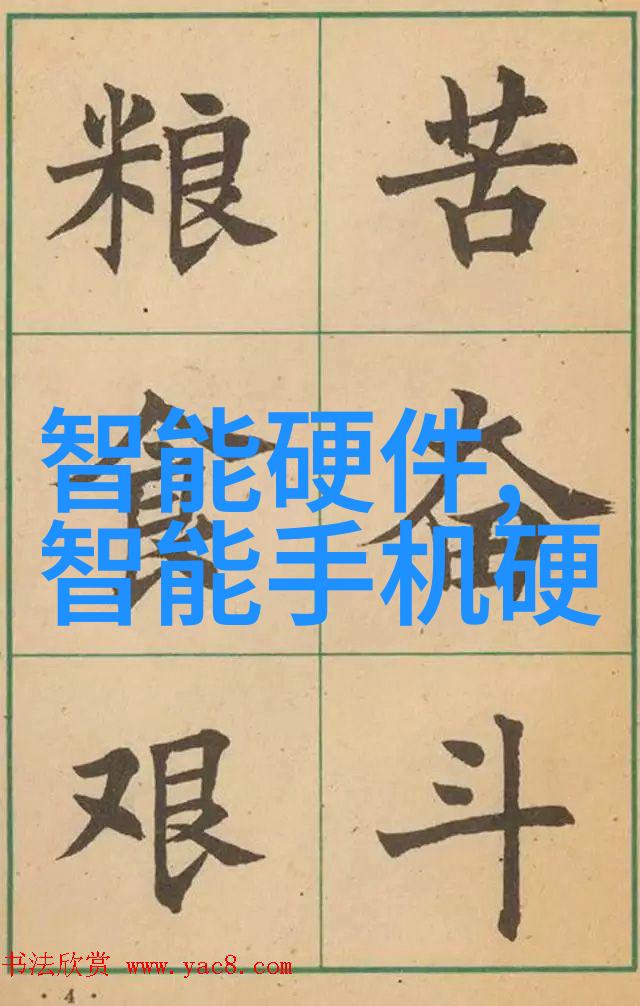 粮 苦
食 奋
艰 斗
智能硬件,
智能手机硬
书法欣赏 www.yac8.com
· 4 ·